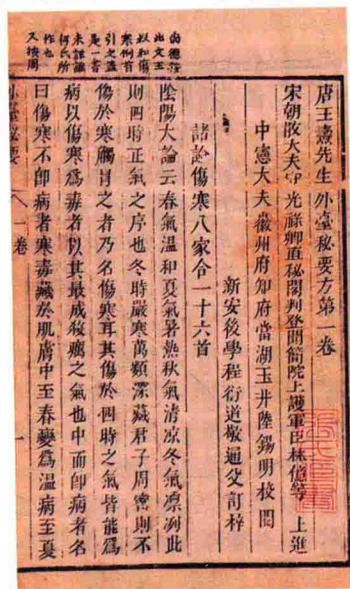 唐王燾先生外臺秘要方第一卷
宋朝散大夫守光祿卿直秘閣判登聞簡院上護軍臣林億等 上進
中憲大夫徽州府知府當湖玉井陸錫明校閱
新安後學程衍道敬通父訂梓
諸論傷寒八家合一十六首
陰陽大論云春氣溫和夏氣暑熱秋氣清涼冬氣凛冽此
則四時正氣之序也冬時嚴寒萬類深藏君子周密則不
傷於寒觸冒之者乃名傷寒耳其傷於四時之氣皆能爲
病以傷寒爲毒者以其最成殺癘之氣也中而即病者名
曰傷寒不即病者寒毒藏於肌膚中至春變爲溫病至夏
外臺秘要
一卷
此文王
以和傷
寒例有
引之蓋
是一書
未詳誰
何氏所
作也
又按周